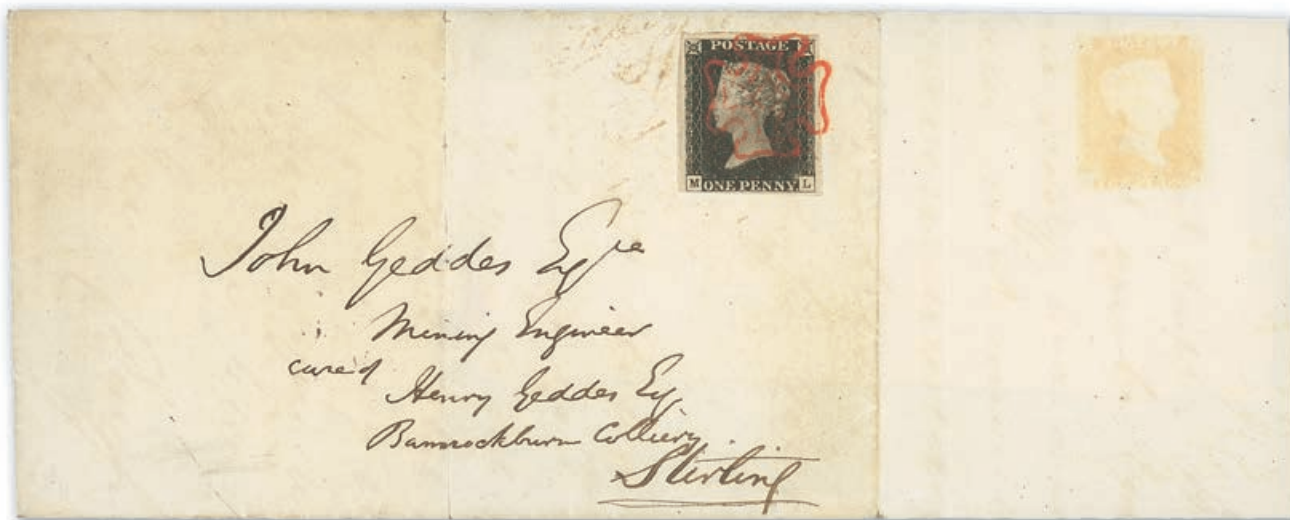 POSTAGE
M ONE PENNY L
John Geddes Esqre
Mining Engineer
care of
Henry Geddes Esq
Bannockburn Colliery
Stirling